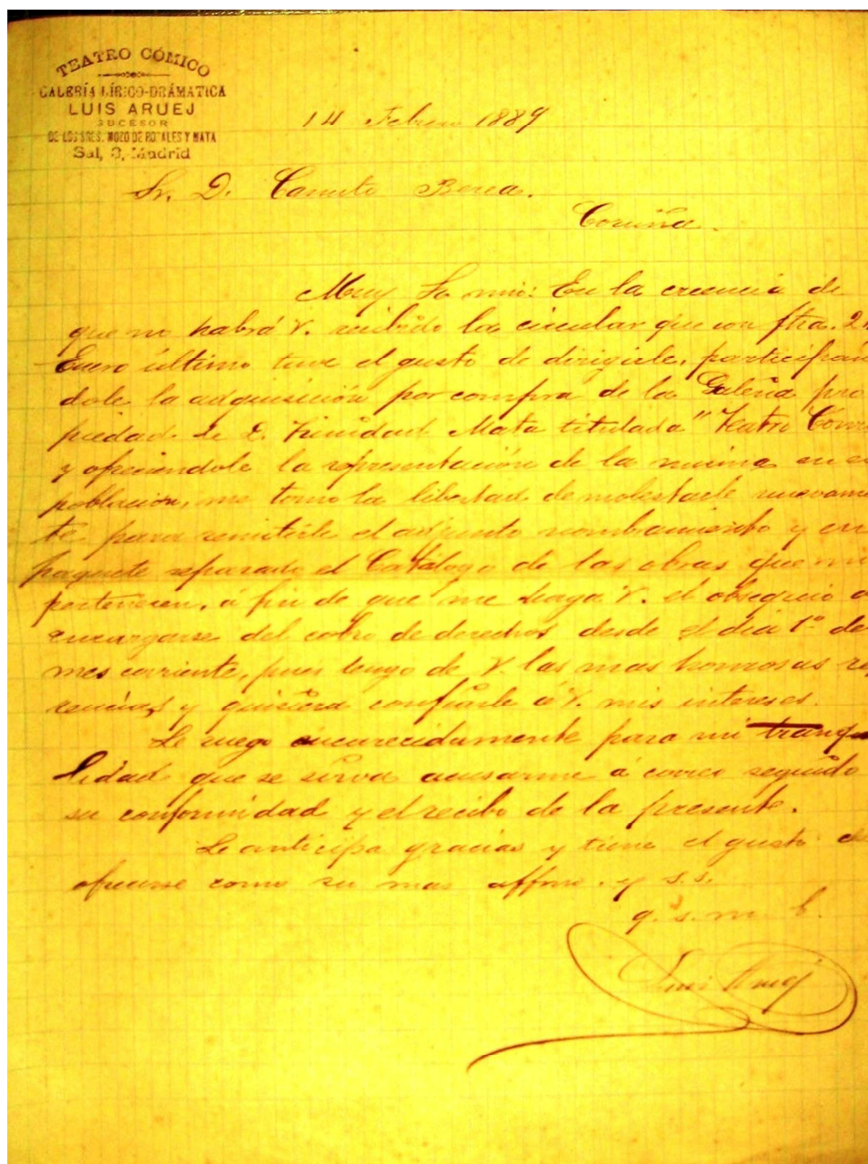 TEATRO CÓMICO
GALERÍA LÍRICO-DRÁMATICA
LUIS ARUEJ
SUCESOR
DE LOS SRES. MOZO DE ROSALES Y MATA
Sal, 3, Madrid
14 Febrero 1889
Sr. D. Canuto Berea.
Coruña.
Muy Sr. mio: En la creencia de
que no habrá V. recibido la circular que con fha. 2
Enero último tuve el gusto de dirigirle, participan
dole la adquisición por compra de la Galería pro
piedad de D. Trinidad Mata titulada "Teatro Cómi
y ofreciendole la representación de la misma en e
población, me tomo la libertad de molestarle nuevamen
te para remitirle el adjunto nombramiento y en
paquete separado el Catálogo de las obras que me
pertenecen, á fin de que me haga V. el obsequio d
encargarse del cobro de derechos desde el dia 1º del
mes corriente, pues tengo de V. las mas honrosas re
rencias y quisiera confiarle á V. mis intereses.
Le ruego encarecidamente para mi tranqui
lidad que se sirva acusarme á correo seguido
su conformidad y el recibo de la presente.
Le anticipa gracias y tiene el gusto de
ofrecerse como su mas affmo. y s.s.
q. s. m. b.
Luis Aruej